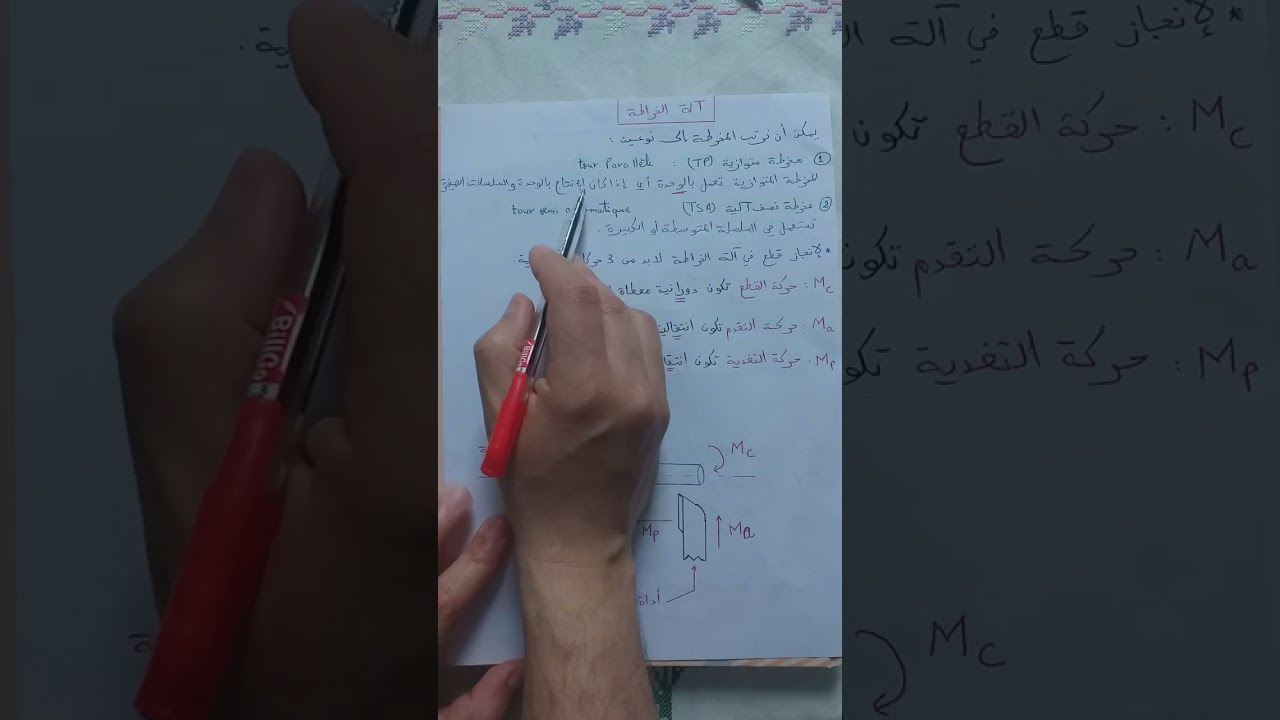 آلة الخراطة
يمكن أن نرتب المخرطة إلى نوعين :
① مخرطة متوازية (TP) : tour Parallèle
المخرطة المتوازية تعمل بالوحدة أي إذا كان الإنتاج بالوحدة والسلسلات
② مخرطة نصف آلية (TSA) tour semi
تستعمل في السلسلة المتوسطة أو الكبيرة .
* لإنجاز قطع في آلة الخراطة لابد من 3
Mc : حركة القطع تكون دورانية معطاة
Ma : حركة التقدم تكون انتقالية
Mp : حركة التغدية تكون
Mc
Mp
Ma
أداة
Bille
* لإنجاز قطع في آلة
Mc : حركة القطع تكون
Ma : حركة التقدم تكون
Mp : حركة التغدية
Mc